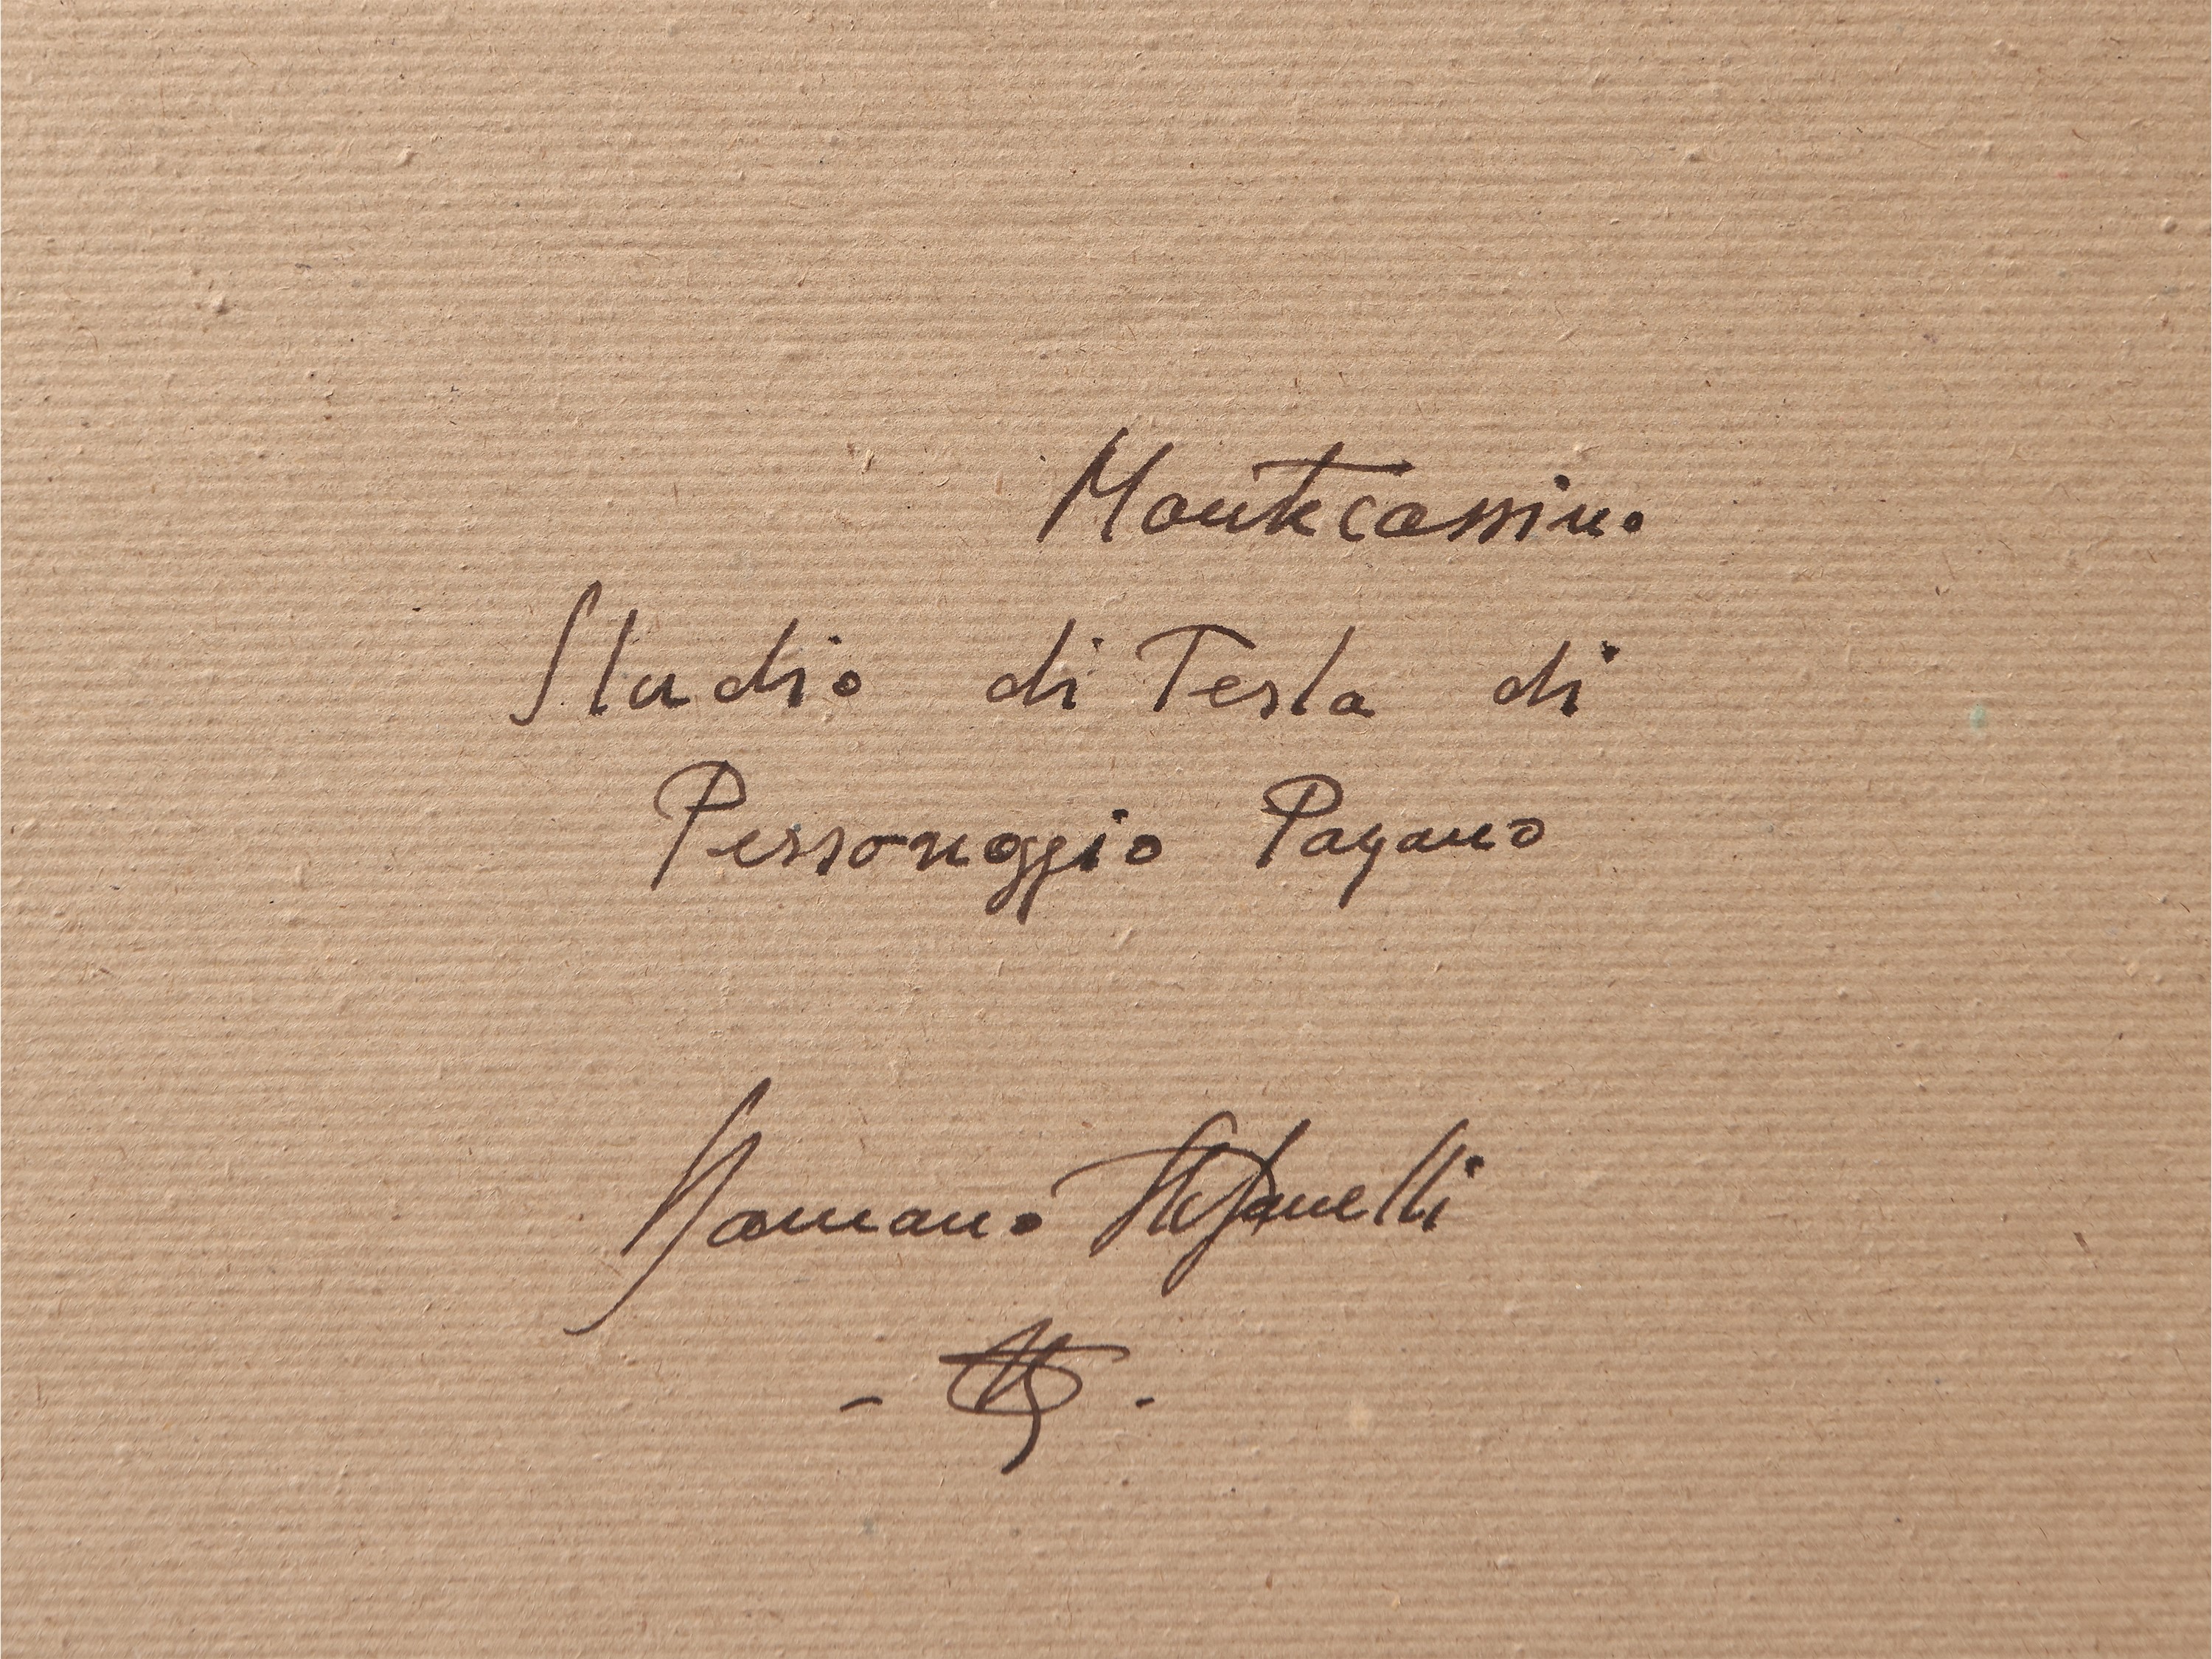 Montecassino
Studio di Testa di
Personaggio Pagano
Romano Stefanelli